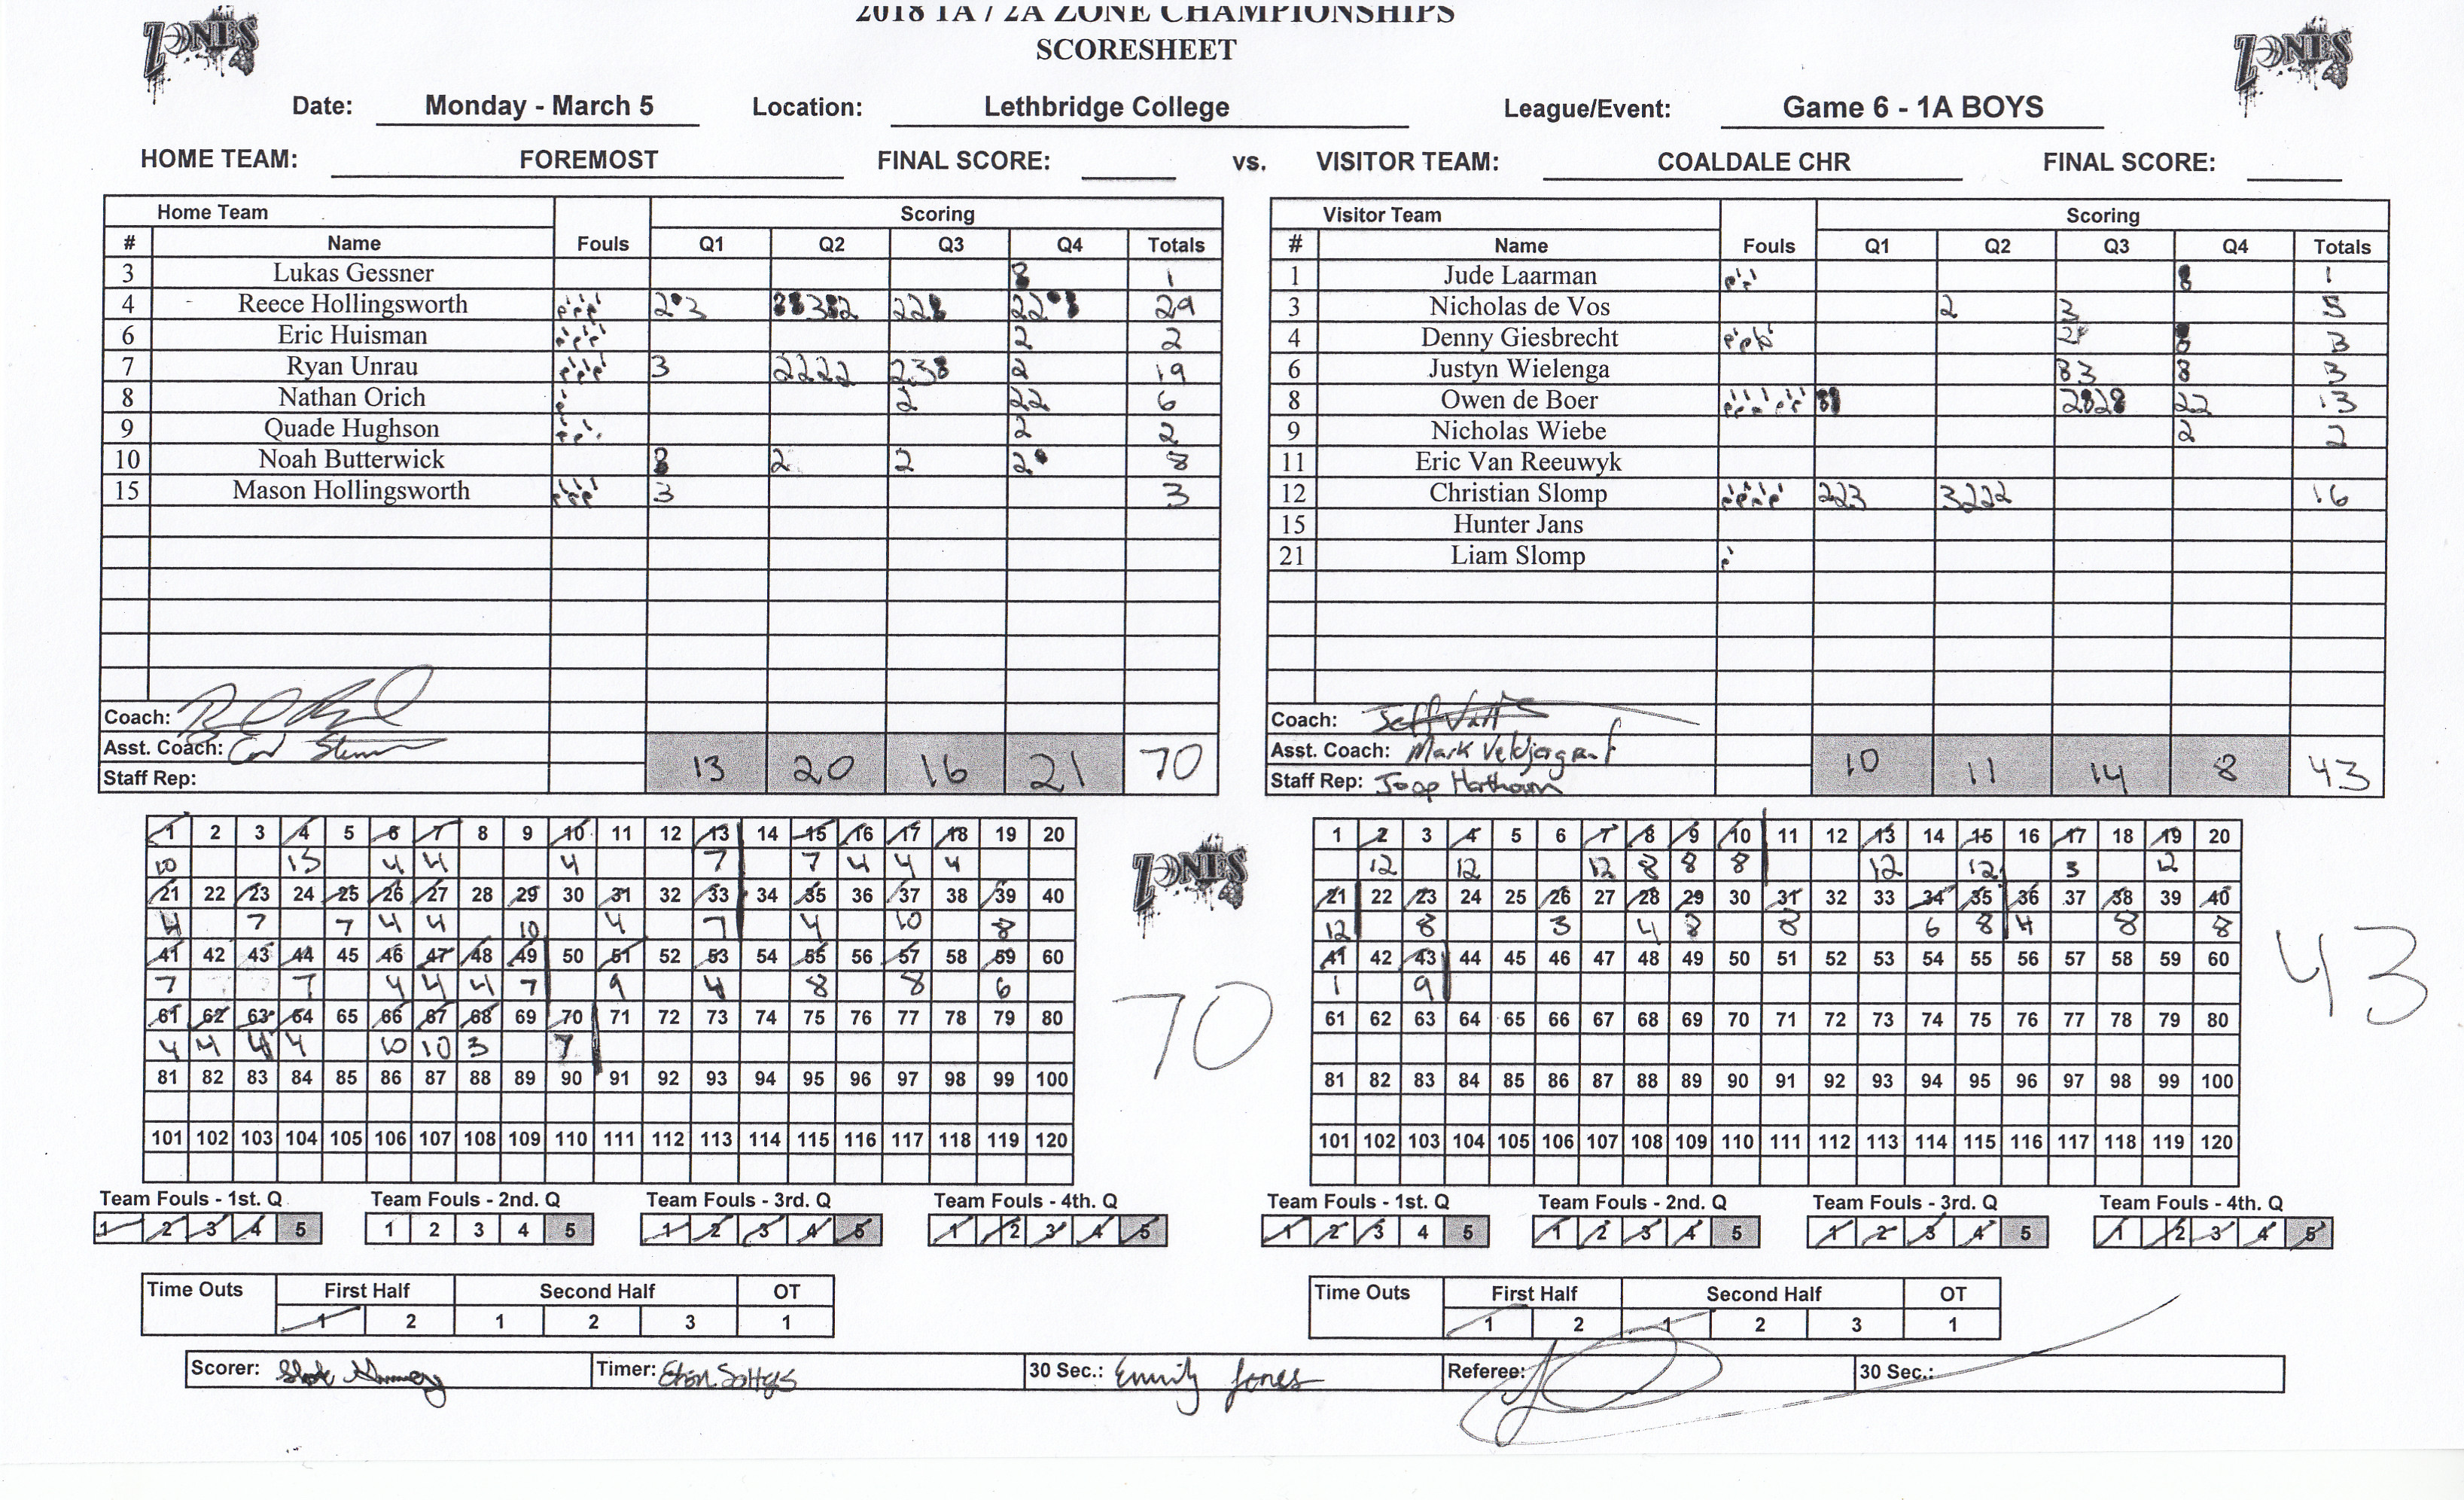 2018 1A / 2A ZONE CHAMPIONSHIPS
SCORESHEET
ZONES
ZONES
Date: Monday - March 5 Location: Lethbridge College League/Event: Game 6 - 1A BOYS
HOME TEAM: FOREMOST FINAL SCORE: vs. VISITOR TEAM: COALDALE CHR FINAL SCORE:
Home Team Fouls Scoring
# Name Q1 Q2 Q3 Q4 Totals
3 Lukas Gessner 1
4 Reece Hollingsworth 29
6 Eric Huisman 2 2
7 Ryan Unrau 3 2222 2 19
8 Nathan Orich 2 22 6
9 Quade Hughson 2 2
10 Noah Butterwick 2 2 2 8
15 Mason Hollingsworth 3 3
Coach:
Asst. Coach:
Staff Rep:
13 20 16 21 70
Visitor Team Fouls Scoring
# Name Q1 Q2 Q3 Q4 Totals
1 Jude Laarman 1
3 Nicholas de Vos 2 3 5
4 Denny Giesbrecht 3
6 Justyn Wielenga 3
8 Owen de Boer 22 13
9 Nicholas Wiebe 2 2
11 Eric Van Reeuwyk
12 Christian Slomp 223 3222 16
15 Hunter Jans
21 Liam Slomp
Coach: Jeff
Asst. Coach: Mark
Staff Rep:
10 11 14 8 43
1 2 3 4 5 6 7 8 9 10 11 12 13 14 15 16 17 18 19 20
10 15 4 4 4 7 7 4 4 4
21 22 23 24 25 26 27 28 29 30 31 32 33 34 35 36 37 38 39 40
4 7 7 4 4 10 4 7 4 10 8
41 42 43 44 45 46 47 48 49 50 51 52 53 54 55 56 57 58 59 60
7 7 4 4 4 7 9 4 8 8 6
61 62 63 64 65 66 67 68 69 70 71 72 73 74 75 76 77 78 79 80
4 4 4 4 10 10 3 7
81 82 83 84 85 86 87 88 89 90 91 92 93 94 95 96 97 98 99 100
101 102 103 104 105 106 107 108 109 110 111 112 113 114 115 116 117 118 119 120
ZONES
70
1 2 3 4 5 6 7 8 9 10 11 12 13 14 15 16 17 18 19 20
12 12 12 8 8 8 12 12 3 12
21 22 23 24 25 26 27 28 29 30 31 32 33 34 35 36 37 38 39 40
12 8 3 4 8 8 6 8 4 8 8
41 42 43 44 45 46 47 48 49 50 51 52 53 54 55 56 57 58 59 60
1 9
61 62 63 64 65 66 67 68 69 70 71 72 73 74 75 76 77 78 79 80
81 82 83 84 85 86 87 88 89 90 91 92 93 94 95 96 97 98 99 100
101 102 103 104 105 106 107 108 109 110 111 112 113 114 115 116 117 118 119 120
43
Team Fouls - 1st. Q Team Fouls - 2nd. Q Team Fouls - 3rd. Q Team Fouls - 4th. Q
1 2 3 4 5 1 2 3 4 5 1 2 3 4 5 1 2 3 4 5
Team Fouls - 1st. Q Team Fouls - 2nd. Q Team Fouls - 3rd. Q Team Fouls - 4th. Q
1 2 3 4 5 1 2 3 4 5 1 2 3 4 5 1 2 3 4 5
Time Outs First Half Second Half OT
1 2 1 2 3 1
Time Outs First Half Second Half OT
1 2 1 2 3 1
Scorer: Timer: 30 Sec.: Emily Jones Referee: 30 Sec.: